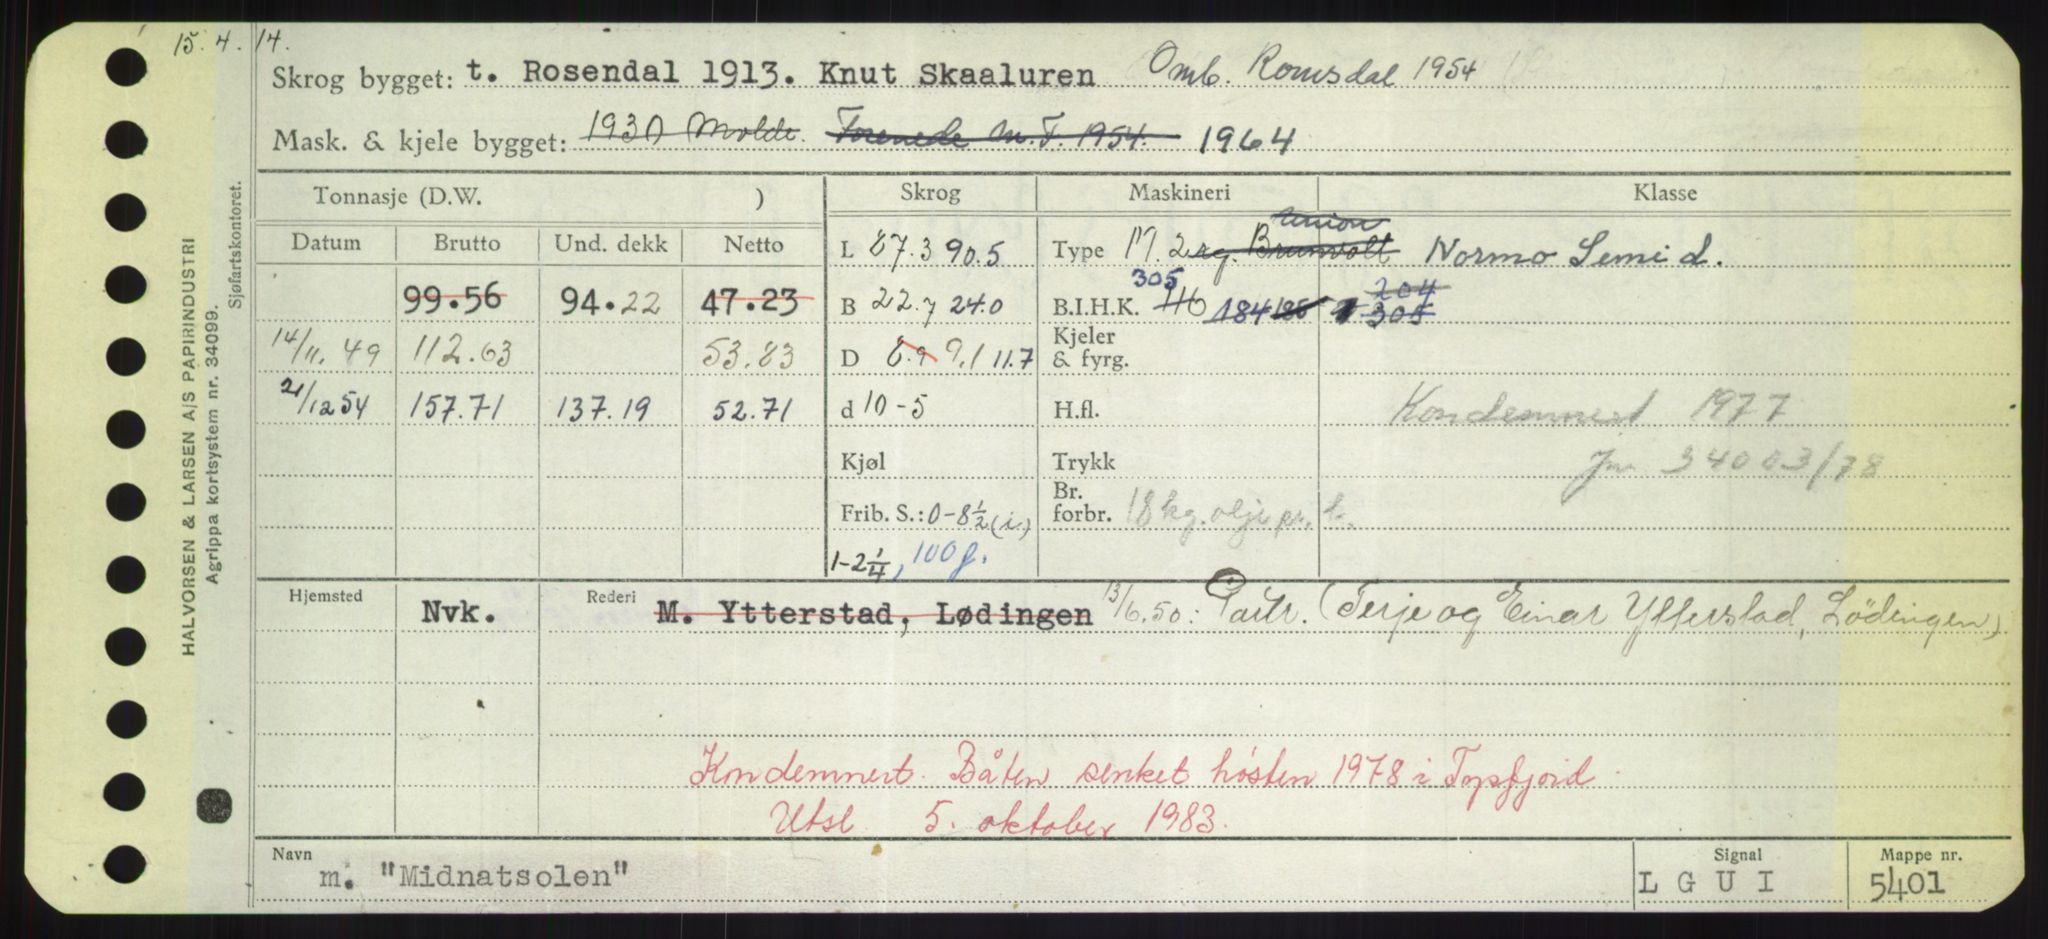 15. 4. 14.
Skrog bygget: t. Rosendal 1913. Knut Skaaluren Omb. Romsdal 1954
Mask. & kjele bygget: 1930 Molde. Forenede M.F. 1954. 1964
Tonnasje (D.W. ) Skrog Maskineri Klasse
Datum Brutto Und. dekk Netto L 87.3 90.5 Type M. 2 sg. Brunvolt Union Normo Semi d.
99.56 94.22 47.23 B 22.7 24.0 B.I.H.K. 305 184 186 204 305
14/11. 49 112.63 53.83 D 8.9 9.1 11.7 Kjeler & fyrg.
21/12 54 157.71 137.19 52.71 d 10-5 H.fl. Kondemnert 1977
Kjøl Trykk Jnr 34003/78
Frib. S.: 0-8½ (i.) Br. forbr. 18 kg. olje pr. t.
1-2¼, 100 f.
Hjemsted Nvk. Rederi M. Ytterstad, Lødingen 13/6.50: Partr. (Terje og Einar Ytterstad, Lödingen)
Kondemnert. Båten senket høsten 1978 i Tysfjord.
Utsl. 5. oktober 1983.
Navn m. "Midnatsolen" Signal L G U I Mappe nr. 5401
HALVORSEN & LARSEN A/S PAPIRINDUSTRI
Agrippa kortsystem nr. 34099.
Sjøfartskontoret.